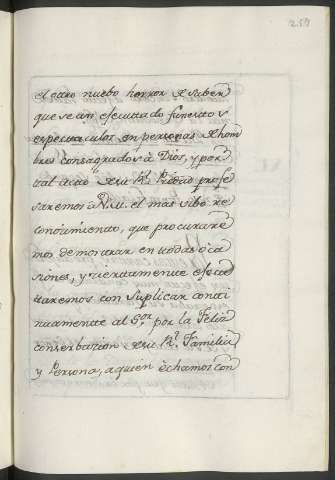 259
el caro nuebo horror de saber
que se an esecutado funestos
espectaculos en personas de hom
bres consagrados à Dios, y por
tal acto de su Rl. Piedad profe
saremos a V.M. el mas vibo re
conocimiento, que procurare
mos demostrar en todas oca
siones, y ciertamente efec
tuaremos con suplicar conti
nuamente al Sor. por la Feliz
conserbazion de su Rl. Familia
y Persona, a quien êchamos con